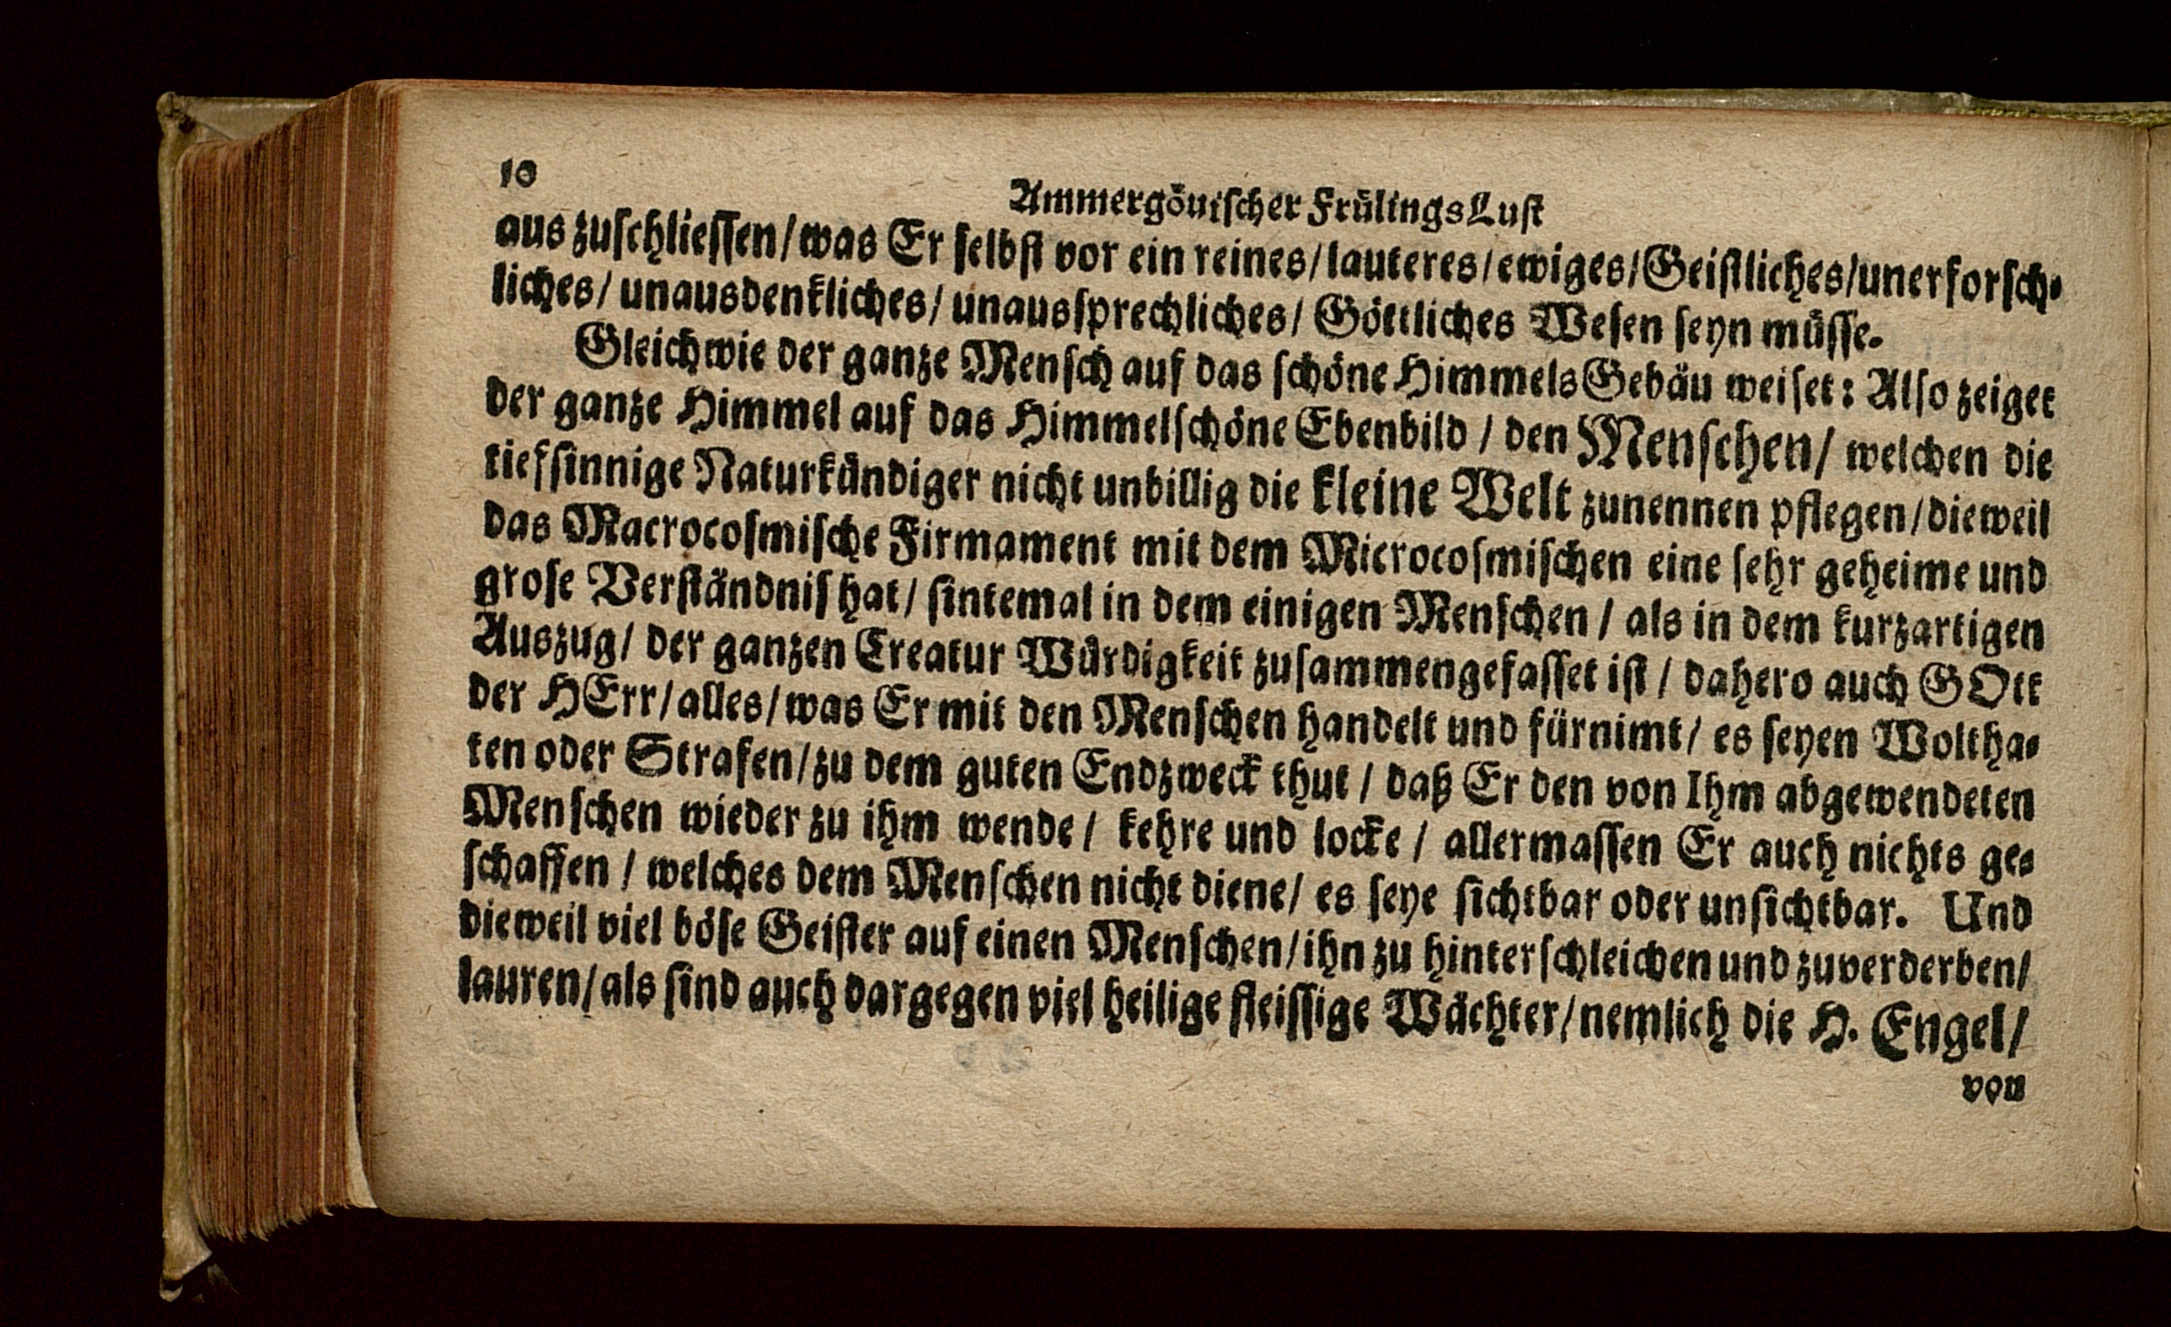 10
Ammergöuischer FrülingsLust
aus zuschliessen/was Er selbst vor ein reines/lauteres/ewiges/Geistliches/unerforsch-
liches/ unausdenkliches/ unaussprechliches/ Göttliches Wesen seyn müsse.
Gleichwie der ganze Mensch auf das schöne HimmelsGebäu weiset: Also zeiget
der ganze Himmel auf das Himmelschöne Ebenbild / den Menschen/ welchen die
tiefsinnige Naturkündiger nicht unbillig die kleine Welt zunennen pflegen/dieweil
das Macrocosmische Firmament mit dem Microcosmischen eine sehr geheime und
grose Verständnis hat/ sintemal in dem einigen Menschen / als in dem kurzartigen
Auszug/ der ganzen Creatur Würdigkeit zusammengefasset ist / dahero auch GOtt
der HErr/alles/was Er mit den Menschen handelt und fürnimt/ es seyen Woltha-
ten oder Strafen/zu dem guten Endzweck thut / daß Er den von Ihm abgewendeten
Menschen wieder zu ihm wende/ kehre und locke / allermassen Er auch nichts ge-
schaffen / welches dem Menschen nicht diene/ es seye sichtbar oder unsichtbar. Und
dieweil viel böse Geister auf einen Menschen/ihn zu hinterschleichen und zuverderben/
lauren/als sind auch dargegen viel heilige fleissige Wächter/nemlich die H. Engel/
von